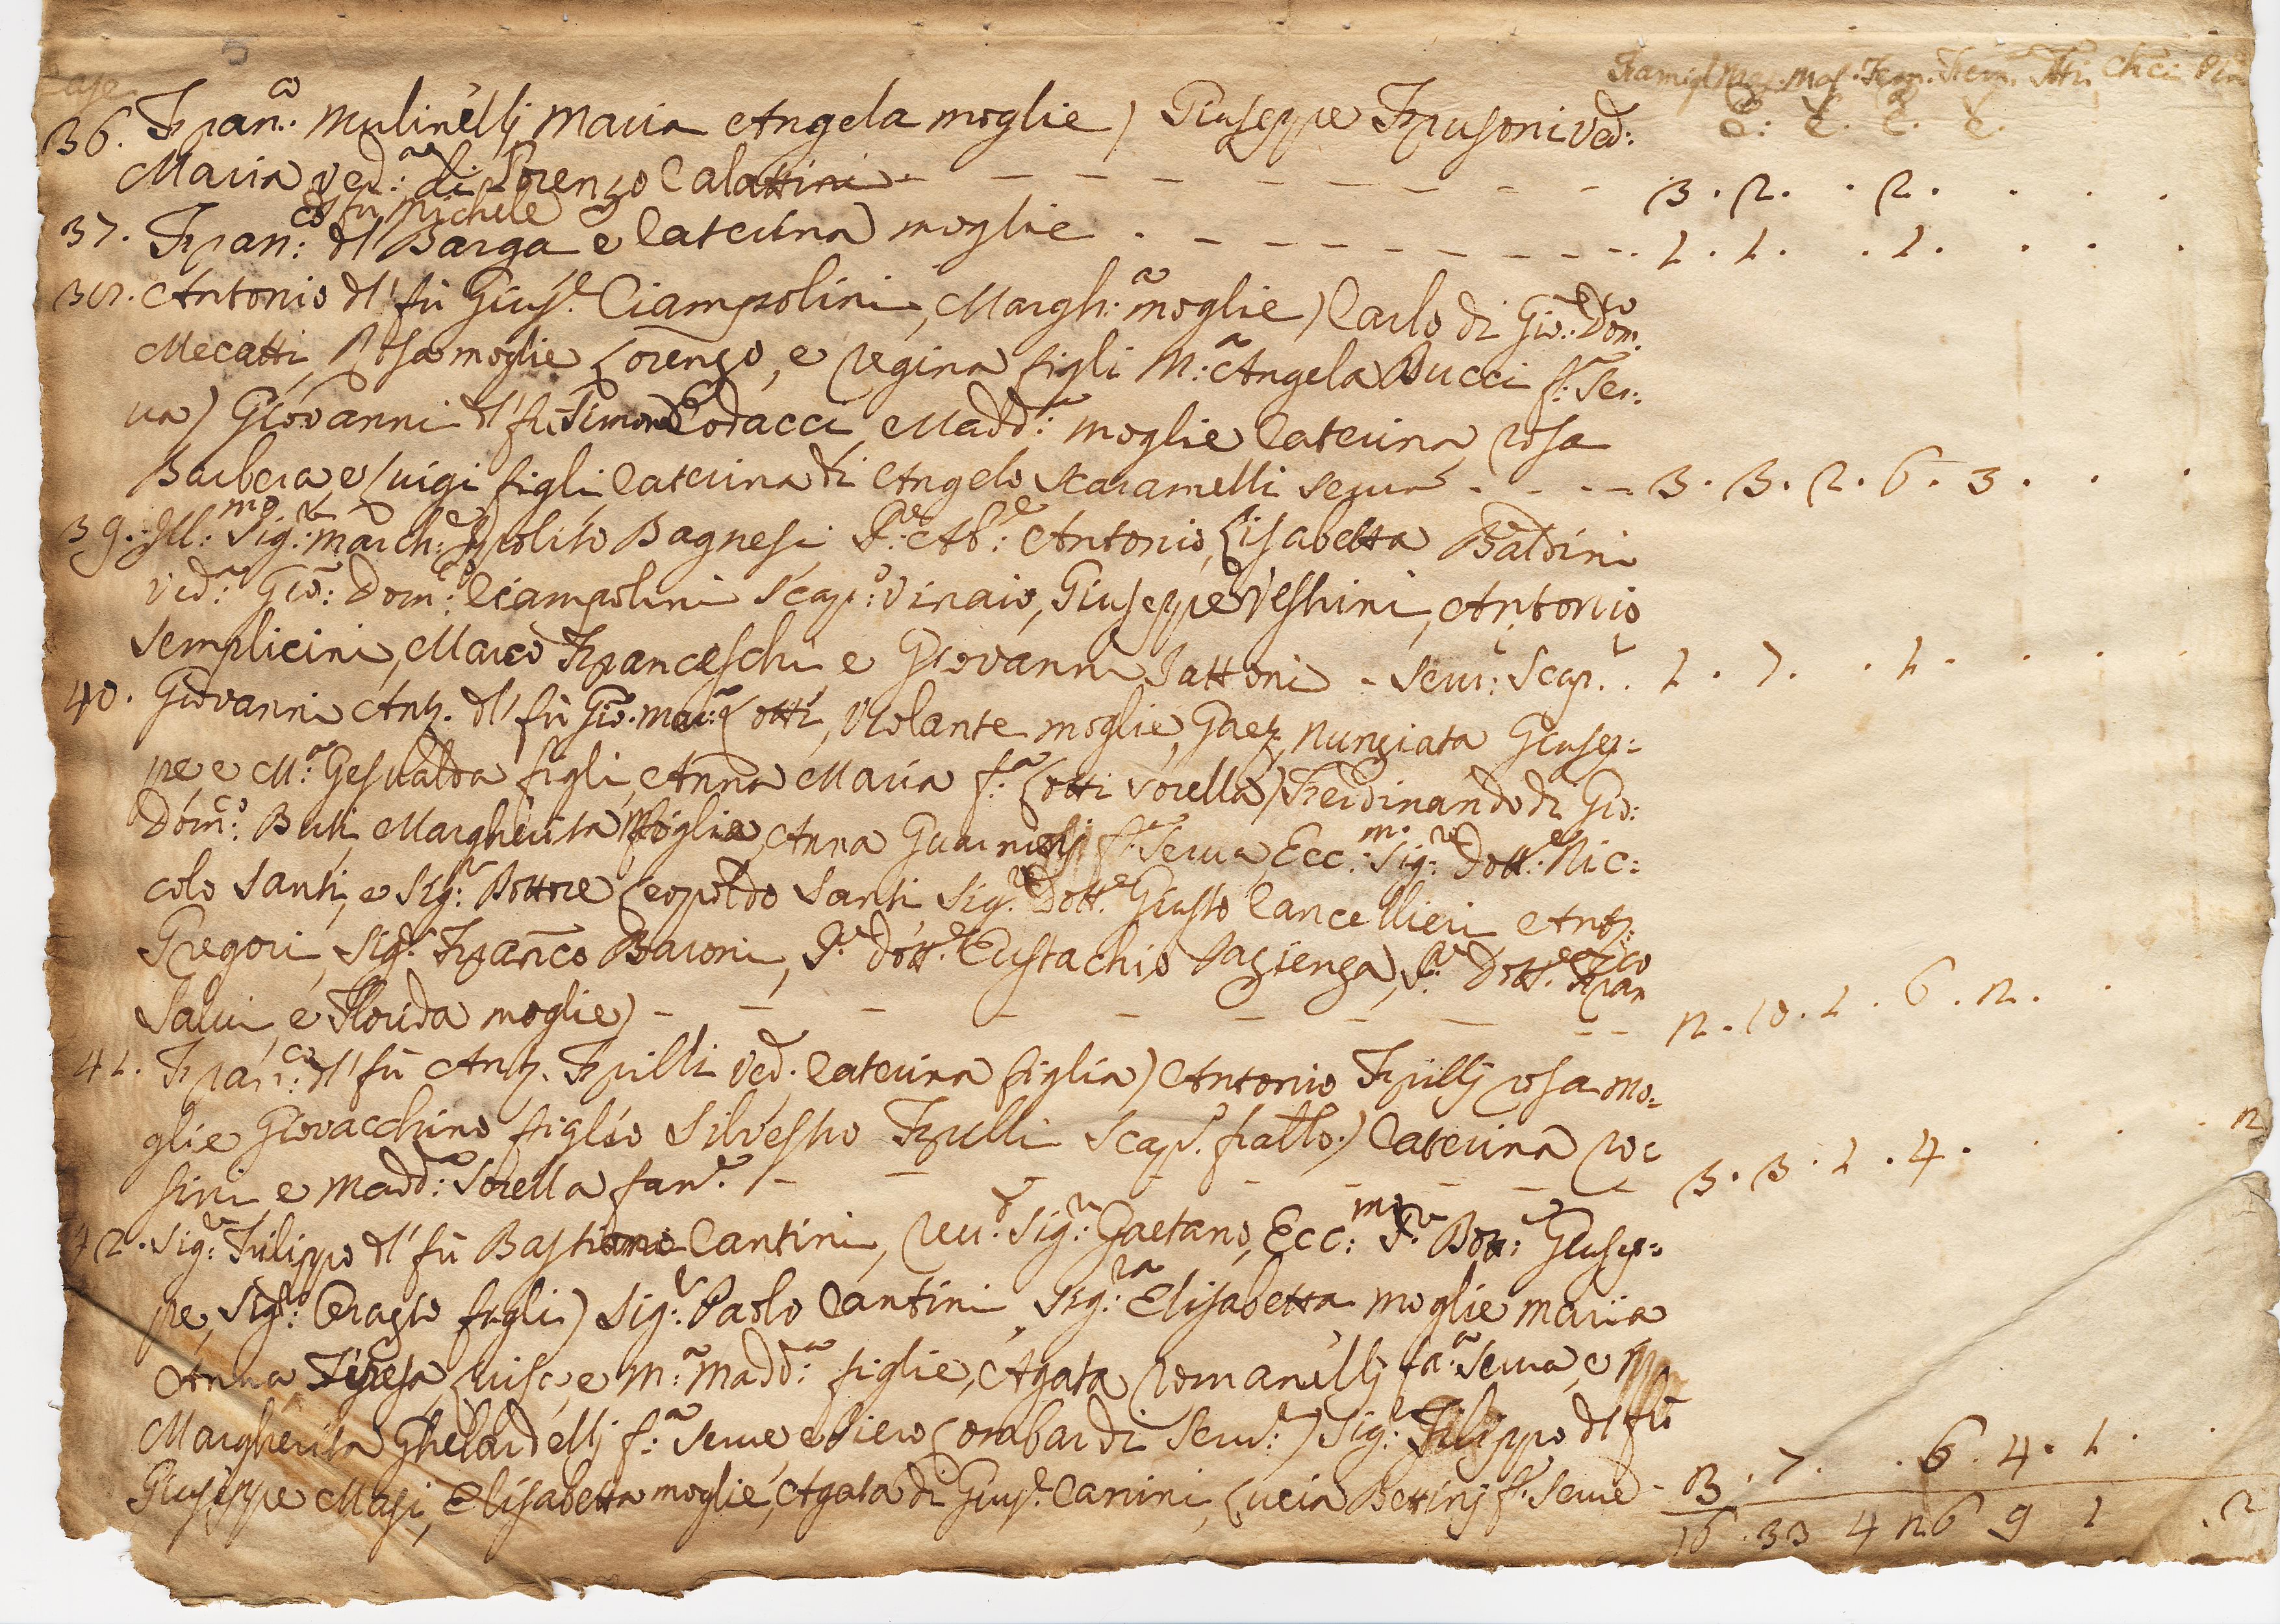 Case
Famigl. Mas. Mas. Fem. Fem. Pti. Chci
C. C. C. C.
36. Fran.co Mulinellj Maria Angela moglie) Giuseppe Frusoni ved:
Maria ved.a di Lorenzo Calattini - - - - - - - - - 3 . 2 . . 2 . . . .
dl fu Michele
37. Fran.co dl' Barga e Caterina moglie . - - - - - - - - 1 . 1 . . 1 . . . .
38. Antonio dl' fù Gius.e Ciampolini, Margh:a moglie) Carlo di Gio: Dom.co
Mecatti, Rosa moglie Lorenzo, e Regina figli M:a Angela Bucci f:a Ser:
va) Giovanni dl' fù Simone Codacci, Madd:a moglie Caterina, rosa
Barbera, e Luigi figli, Caterina di Angelo Scaramelli serva - - - - 3 . 3 . 2 . 6 . 3 . . .
39. Ill:mo Sig:re March:e Ipolito Bagnesi P:e Ab:e Antonio, Lisabetta Baldini
Ved:a Gio: Dom:co Ciampolini Scap:o Vinaio, Giuseppe Vestrini, Antonio
Semplicini, Marco Franceschi e Giovanni Fattoni - Serv:i Scap:i . 1 . 7 . . 1 . . . .
40. Giovanni Ant.o dl' fù Gio. Mar:a Lotti, Violante moglie, Gaet.o, Nunziata Giusep:
pe, e M:a Gesualda figli, Anna Maria f:a Lotti sorella) Ferdinando di Gio:
Dom:co Buti, Margherita moglie, Anna f:a Serva, Ecc:mo Sig:re Dott:e Nic:
colo Santi, e Sig:r Dottore Leopoldo Santi Sig:re Dott:e Giusto Cancellieri Ant.o
Gregori, Sig:r Franco Baroni, S:e Dott:e Eustachio Pazienza, S:re Dott:e Fran.co
Salvi, e Florida moglie) - - - - - - - - - - 2 . 10 . 1 . 6 . 2 . .
41. Fran:co dl' fù Ant.o Frilli Ved. Caterina figlia) Antonio Frillj rosa mo:
glie Giovacchino figlio Silvestro Frulli Scap.o fratlo.) Caterina ros
sini, e Madd:a Sorella fan.e - - - - - - - - - 3 . 3 . 1 . 4 . . . . 2
42. Sig:re Filippo dl' fù Bastiano Cantini, Rev:o Sig:re Gaetano, Ecc:mo S:re Dott:e Giusep:
pe, Sig:re figli) Sig:r Paolo Cantini, Sig:ra Elisabetta moglie Maria
Anna Teresa, Luisa, e M:a Madd:a figlie, Agata Romanellj fa:a Serva, e
Margherita Ghelardellj f:a Serve e Piero Lombardi Serv:e) Sig:r Filippo dl fù
Giuseppe Masi, Elisabetta moglie, Agata di Gius.e Canini, Lucia Bettinj f:e Serve - 3 . 7 . . 6 . 4 . 1 . .
16 . 33 4 26 9 1 . 2